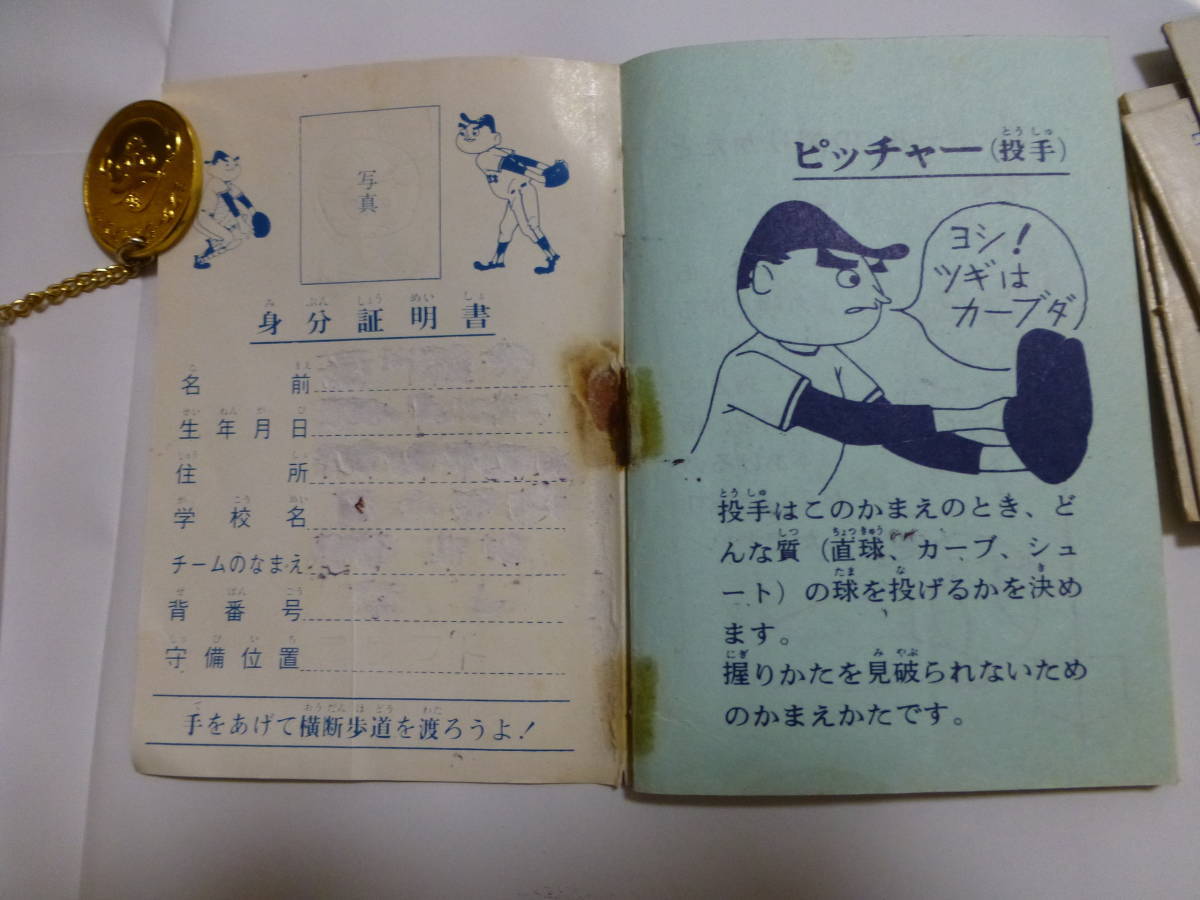 写真
身分証明書
名前
生年月日
住所
学校名
チームのなまえ
背番号
守備位置
手をあげて横断歩道を渡ろうよ!
ピッチャー(投手)
ヨシ!
ツギは
カーブダ
投手はこのかまえのとき、ど
んな質(直球、カーブ、シュ
ート)の球を投げるかを決め
ます。
握りかたを見破られないため
のかまえかたです。